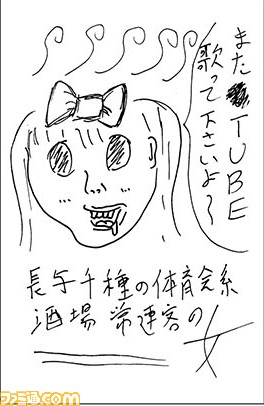 また TUBE
歌って下さいよ〜
長与千種の体育会系
酒場 常連客の
女
ファミ通.com